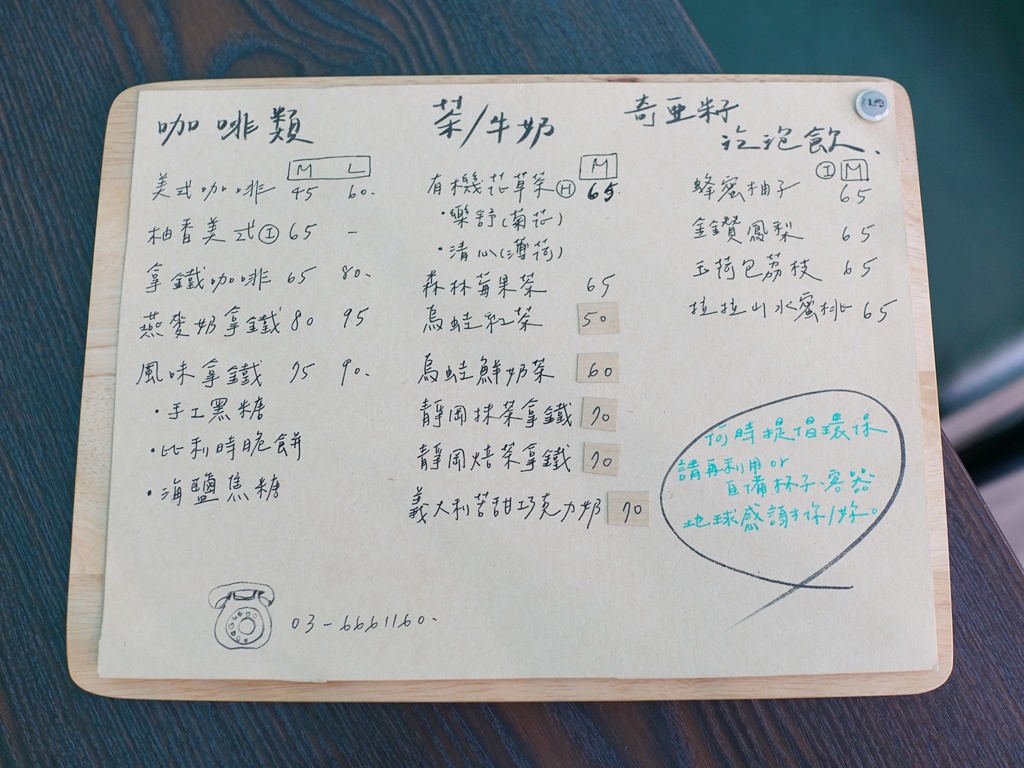 咖啡類
M L
美式咖啡 45 60.
柚香美式Ⓘ 65 -
拿鐵咖啡 65 80.
燕麥奶拿鐵 80 95
風味拿鐵 75 90.
・手工黑糖
・比利時脆餅
・海鹽焦糖
茶/牛奶
M
有機花草茶Ⓗ 65.
・樂舒(菊花)
・清心(薄荷)
森林莓果茶 65
烏蛙紅茶 50
烏蛙鮮奶茶 60
靜岡抹茶拿鐵 70
靜岡焙茶拿鐵 70
義大利苦甜巧克力奶 70
奇亞籽
泣泡飲.
Ⓘ M
蜂蜜柚子 65
金鑽鳳梨 65
玉荷包荔枝 65
拉拉山水蜜桃 65
何時提倡環保
請再利用or
自備杯子、容器
地球感謝你/妳。
03-6661160.
5